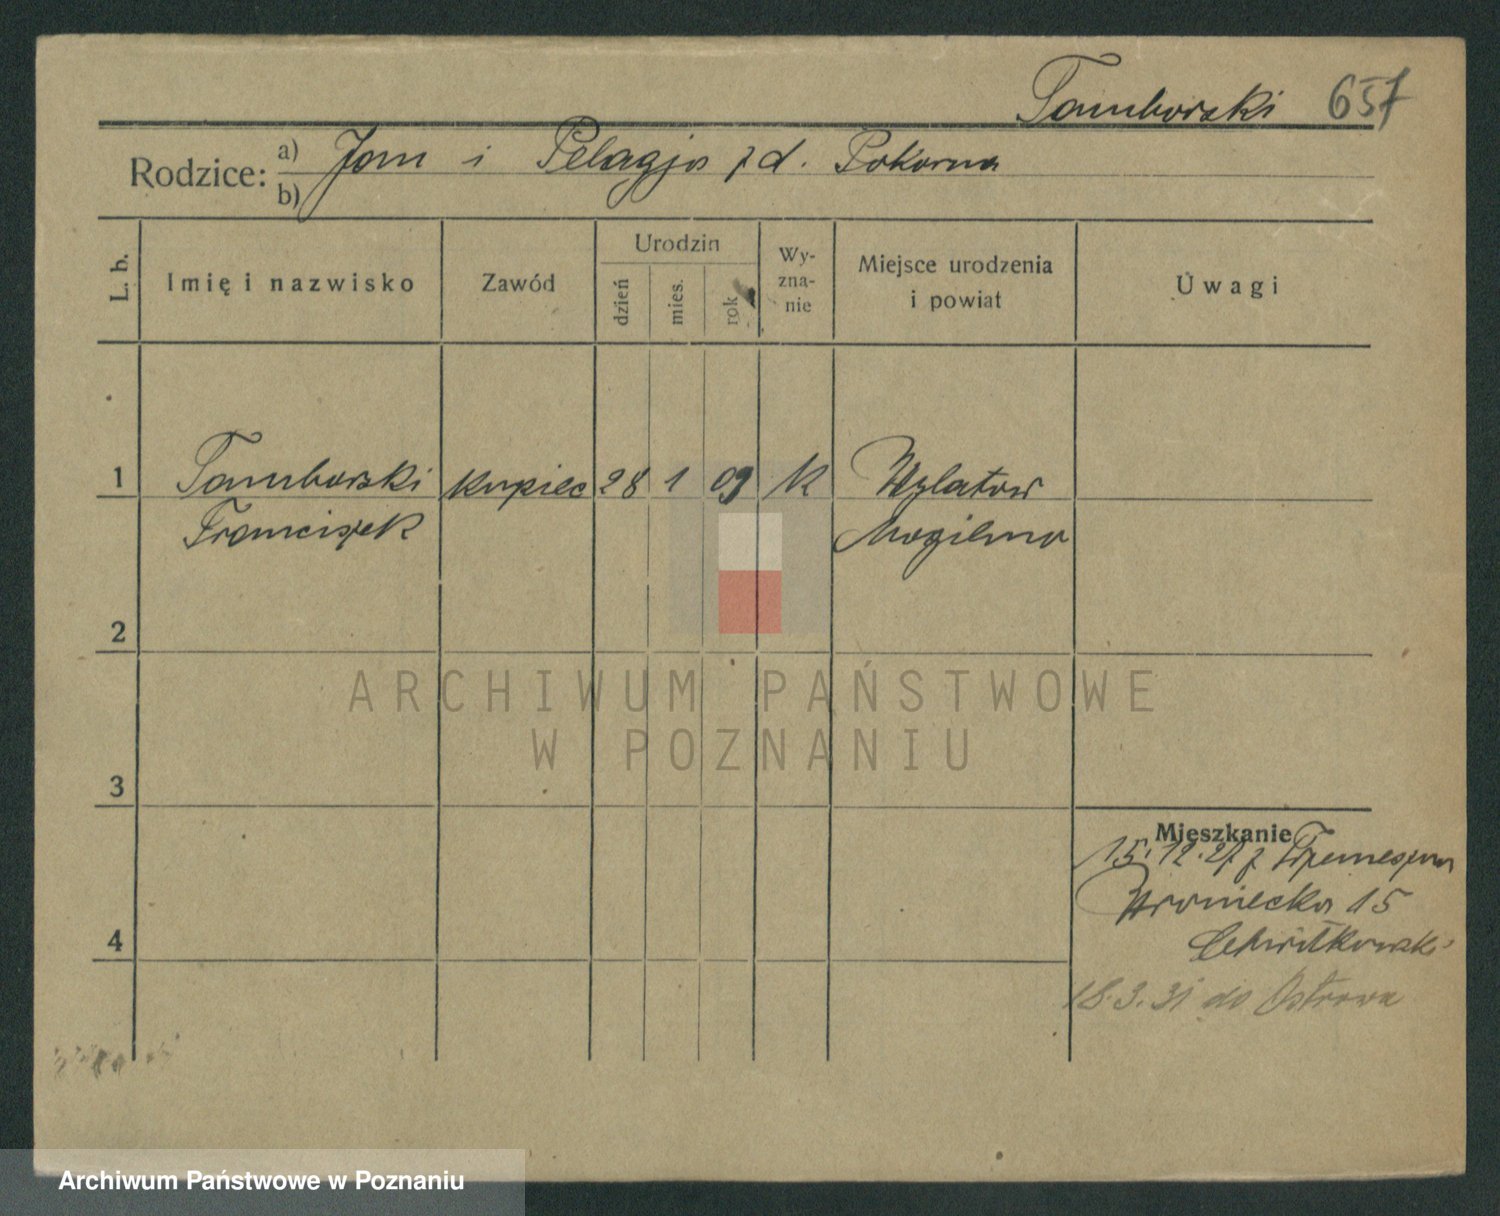 Tamborski 657
Rodzice: a) Jan i Pelagja z d. Pokorna
b)
L. b.
Imię i nazwisko
Zawód
Urodzin
dzień
mies.
rok
Wy-
zna-
nie
Miejsce urodzenia
i powiat
Uwagi
1 Tamborski kupiec 28 1 09 k Wylatow
Franciszek Mogilno
2
ARCHIWUM PAŃSTWOWE
W POZNANIU
3
Mieszkanie
15.12.27 z Trzemeszna
Wroniecka 15
18.3.31 do Ostrowa
4
Archiwum Państwowe w Poznaniu